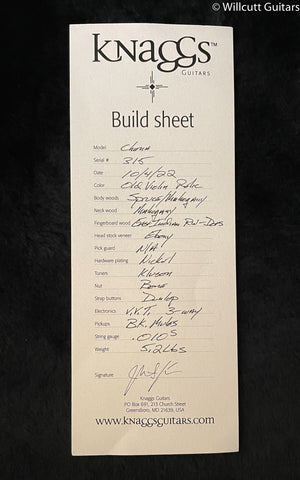 © Willcutt Guitars
KNAGGS™
GUITARS
Build sheet
Model Chena
Serial # 315
Date 10/4/22
Color Old Violin Relic
Body woods Spruce/Mahogany
Neck wood Mahogany
Fingerboard wood East Indian RW-Dots
Head stock veneer Ebony
Pick guard N/A
Hardware plating Nickel
Tuners Kluson
Nut Bone
Strap buttons Dunlop
Electronics V.V.T. 3-way
Pickups B.K. Mules
String gauge .010s
Weight 5.2 Lbs
Signature
Knaggs Guitars
PO Box 691, 213 Church Street
Greensboro, MD 21639, USA
www.KNAGGSGUITARS.com